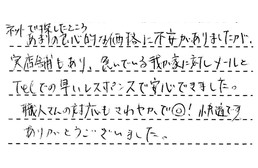 ネットで探したところ
あまりの良心的な価格に不安がありましたが、
実店舗もあり、急いでいる我が家に対しメールと
Telでの早いレスポンスで安心できました。
職人さんの対応もさわやかで◎! 快適です
ありがとうございました。